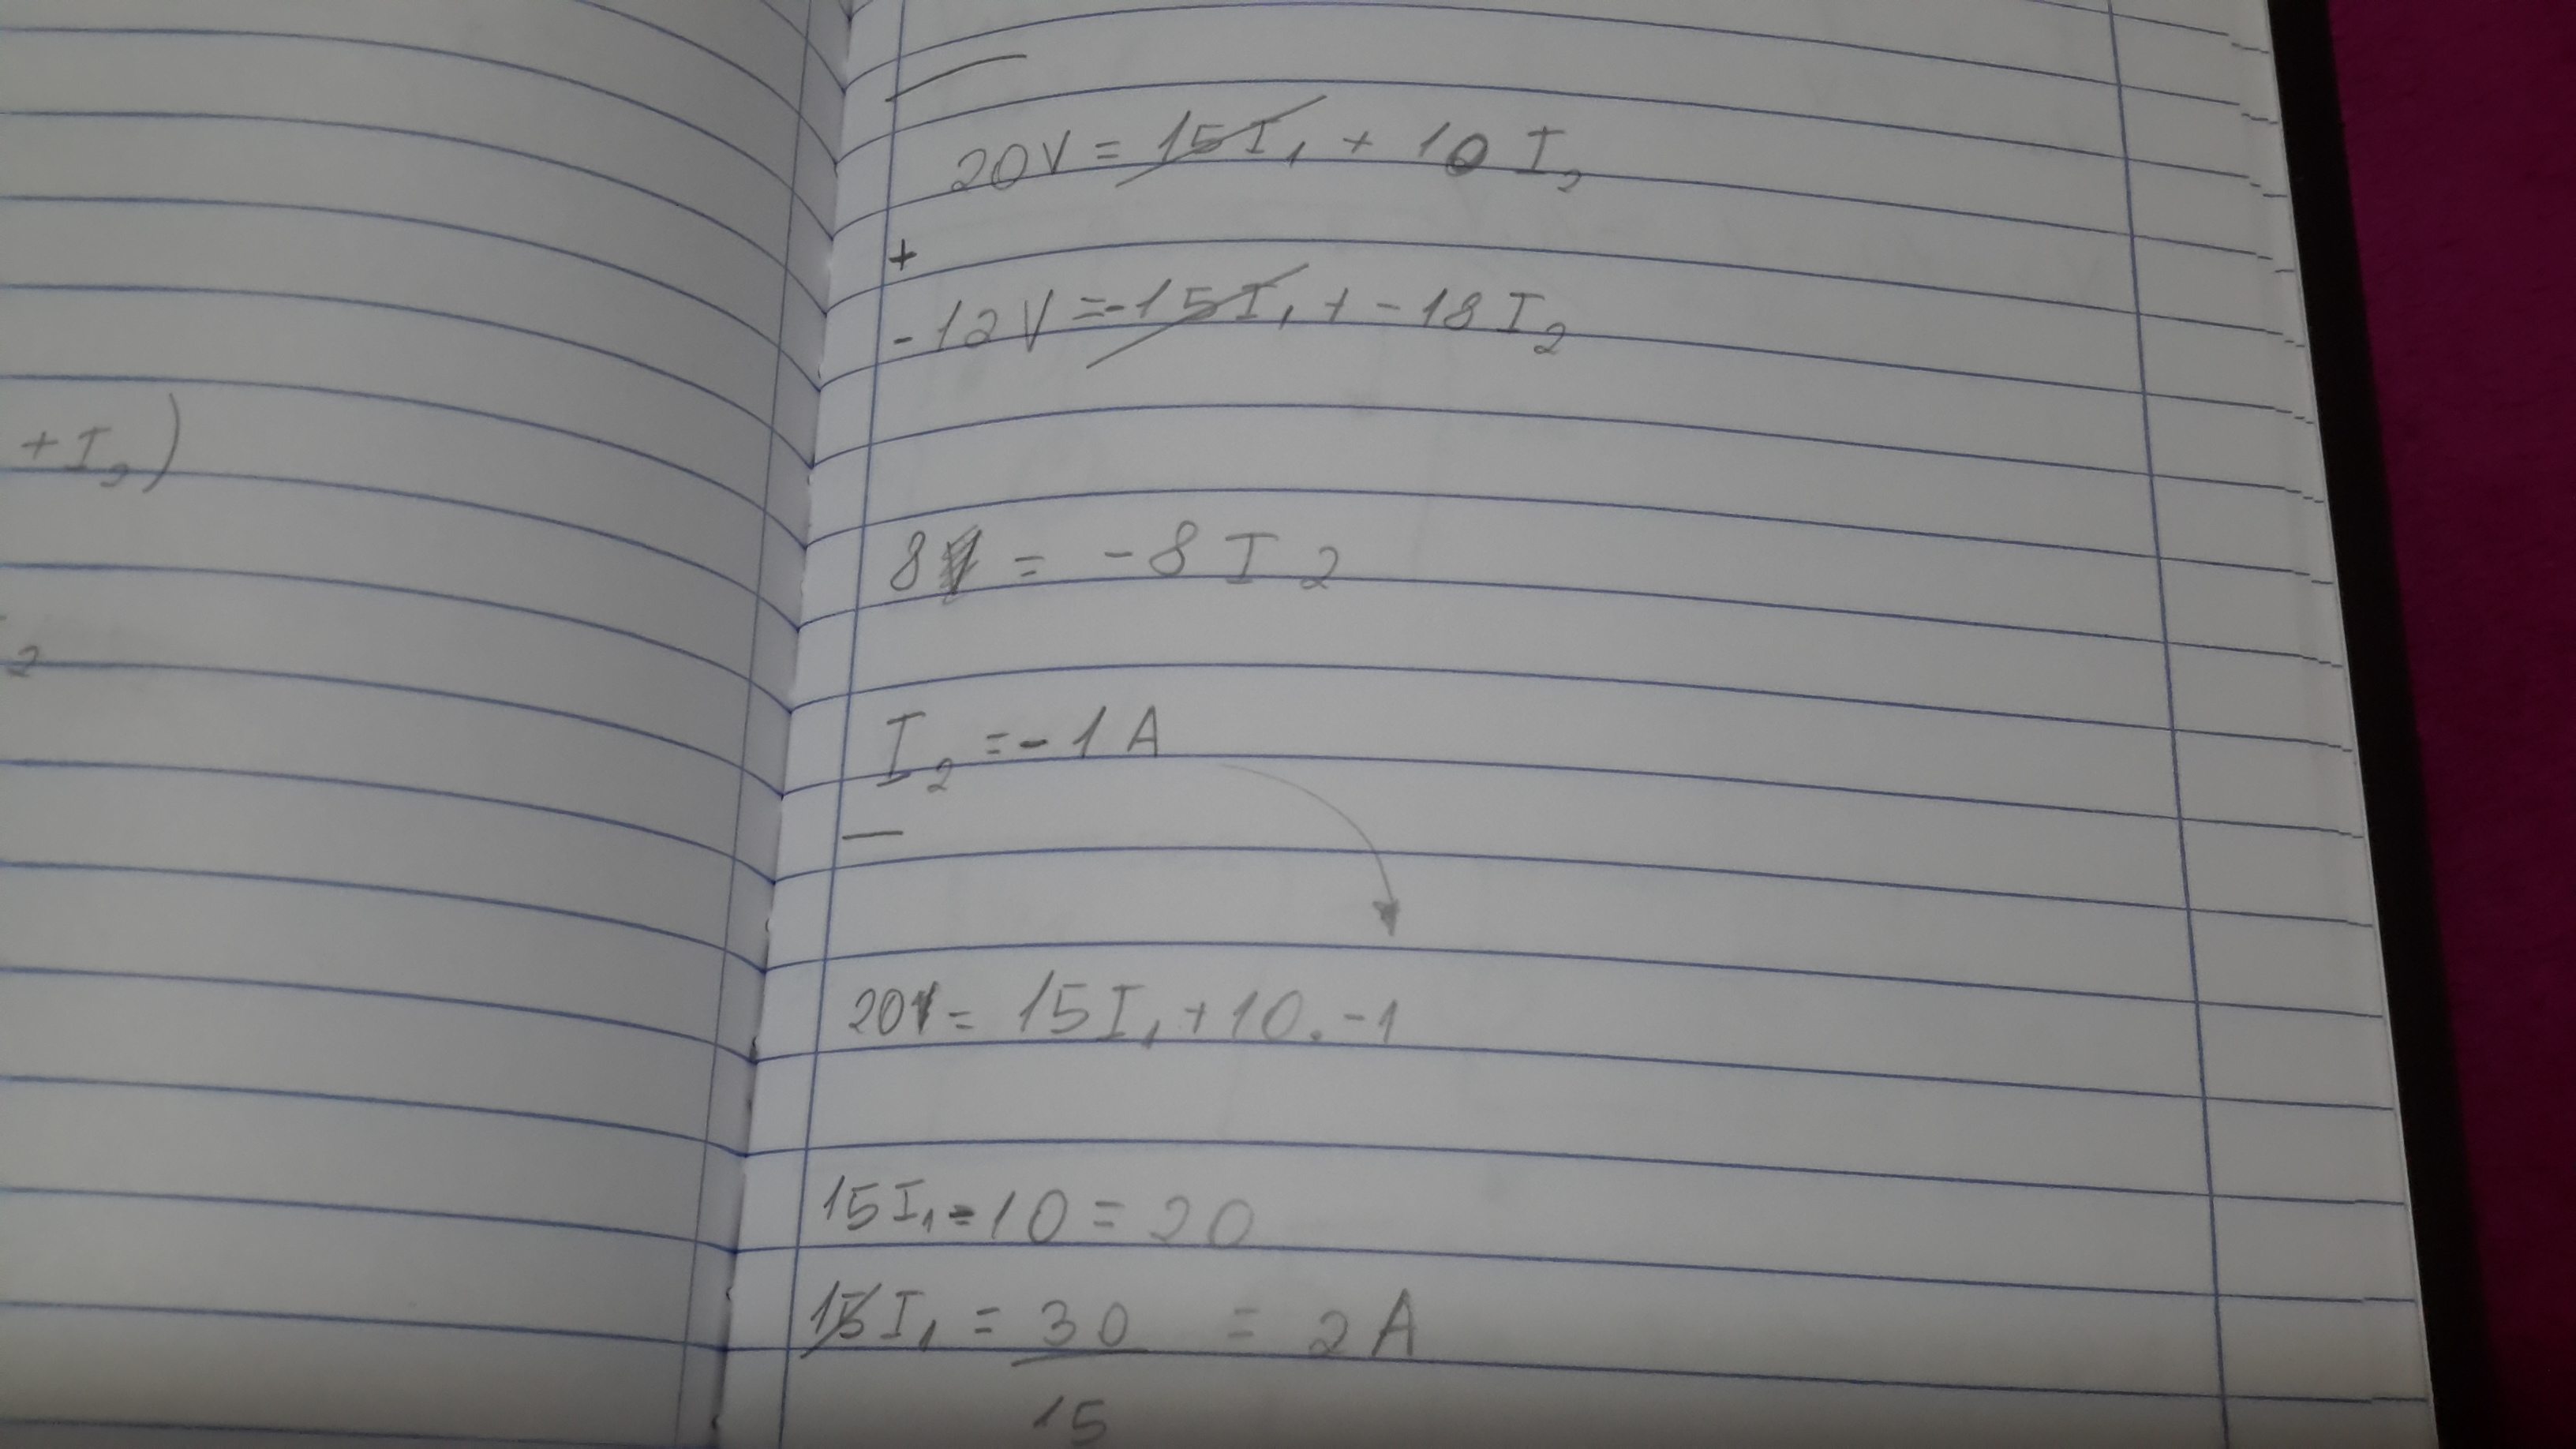 + I₂)
2
20V = 15I₁ + 10 I₂
+
- 12V = -15I₁ + - 18 I₂
8 = - 8 I 2
I₂ = - 1 A
20 = 15I₁ + 10 . - 1
15I₁ - 10 = 20
15I₁ = 30 = 2 A
15